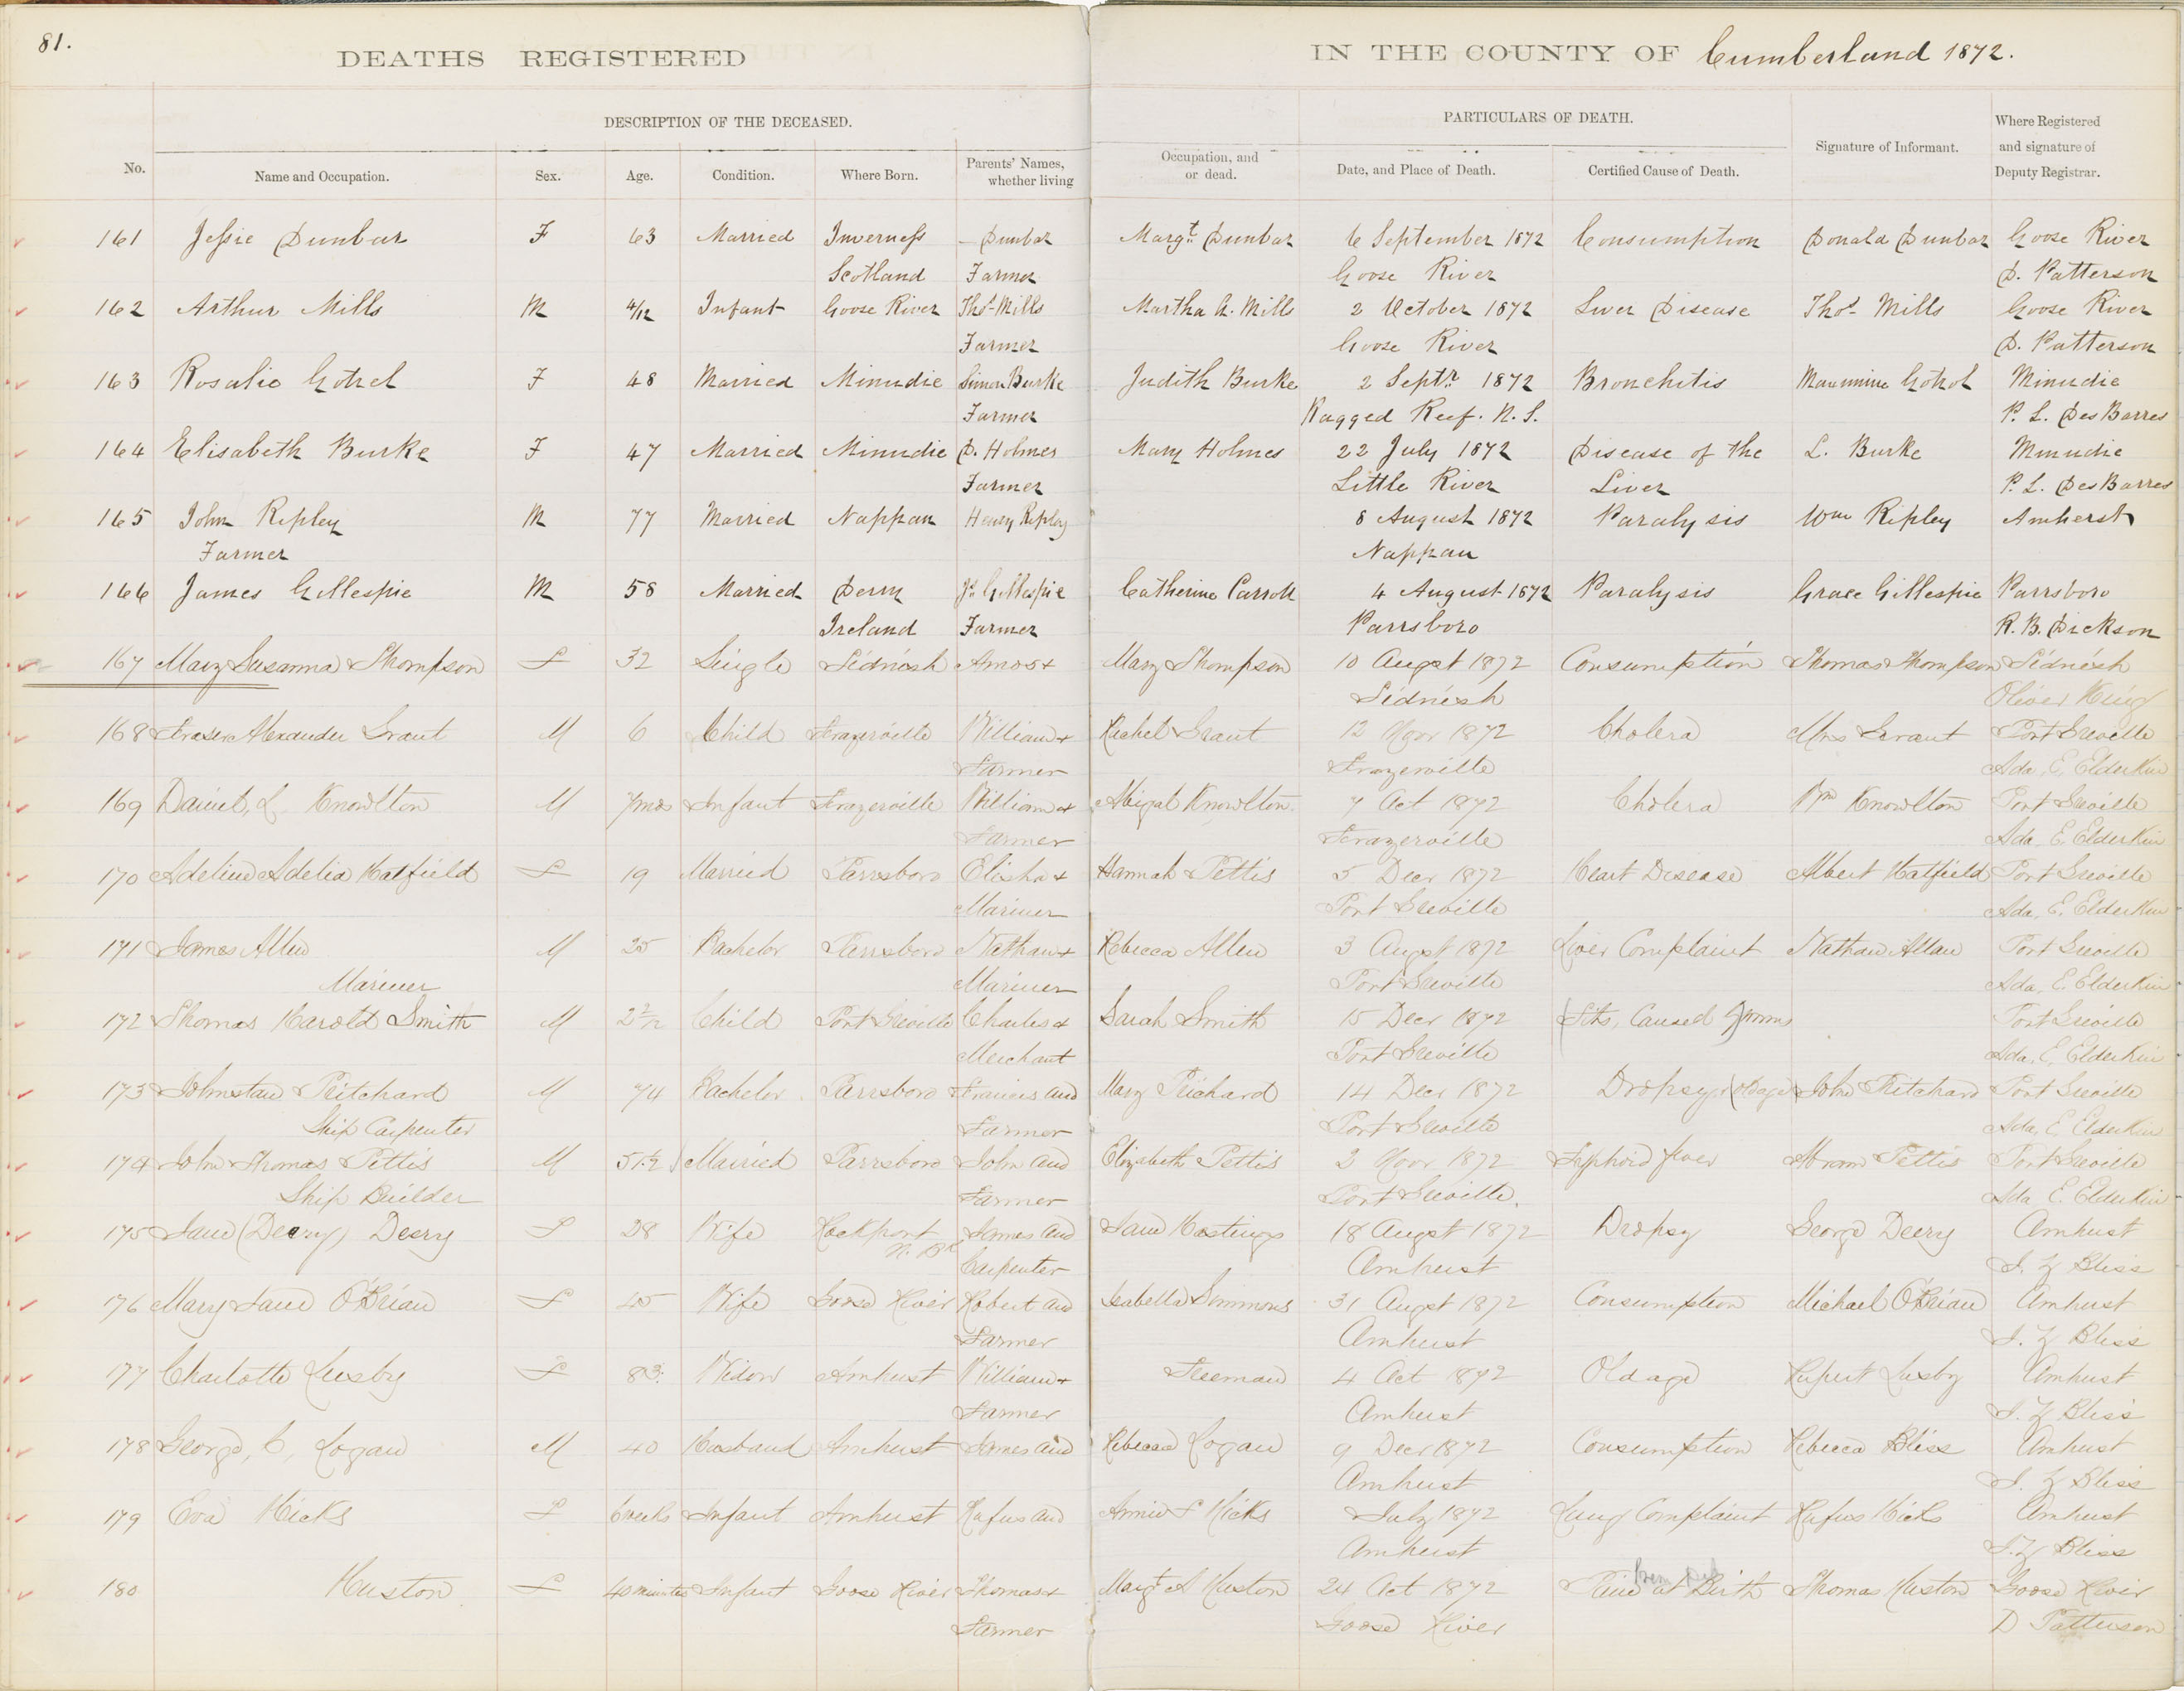 81.
DEATHS REGISTERED IN THE COUNTY OF Cumberland 1872.
DESCRIPTION OF THE DECEASED. PARTICULARS OF DEATH. Where Registered and signature of Deputy Registrar.
No. Name and Occupation. Sex. Age. Condition. Where Born. Parents' Names, whether living Occupation, and or dead. Date, and Place of Death. Certified Cause of Death. Signature of Informant.
161 Jessie Dunbar F 63 Married Inverness — Dunbar Margt. Dunbar 6 September 1872 Consumption Donald Dunbar Goose River
Scotland Farmer Goose River D. Patterson
162 Arthur Mills M 4/12 Infant Goose River Thos. Mills Martha A. Mills 2 October 1872 Liver Disease Thos. Mills Goose River
Farmer Goose River D. Patterson
163 Rosalie Gotrel F 48 Married Minudie Simon Burke Judith Burke 2 Septr. 1872 Bronchitis Gotrol Minudie
Farmer Ragged Reef. N. S. P. L. DesBarres
164 Elisabeth Burke F 47 Married Minudie D. Holmes Mary Holmes 22 July 1872 Disease of the L. Burke Minudie
Farmer Little River Liver P. L. DesBarres
165 John Ripley M 77 Married Nappan Henry Ripley 8 August 1872 Paralysis Wm Ripley Amherst
Farmer Nappan
166 James Gillespie M 58 Married Derry Js. Gillespie Catherine Carroll 4 August 1872 Paralysis Grace Gillespie Parrsboro
Ireland Farmer Parrsboro R. B. Dickson
167 Mary Susanna Thompson F 32 Single Sidnish Amos + Mary Thompson 10 Augst 1872 Consumption Thomas Thompson Sidnish
Sidnish Oliver King
168 Fraser Alexander Grant M 6 Child Frazerville William + Rachel Grant 12 Novr 1872 Cholera Mrs Grant Port Greville
Farmer Frazerville Ada, E, Elderkin
169 Daniel, L. Knowlton M 7 mos Infant Frazerville William + Abigal Knowlton. 7 Oct 1872 Cholera Wm Knowlton Port Greville
Farmer Frazerville Ada, E. Elderkin
170 Adelia Hatfield F 19 Married Parrsboro Elisha + Hannah Pettis 5 Decr 1872 Heart Disease Albert Hatfield Port Greville
Mariner Port Greville Ada, E. Elderkin
171 James Allen M 25 Bachelor Parrsboro Nathan + Rebecca Allen 3 Augst 1872 Liver Complaint Nathan Allan Port Greville
Mariner Mariner Port Greville Ada, E. Elderkin
172 Thomas Harold Smith M 2 2/12 Child Port Greville Charles + Sarah Smith 15 Decr 1872 Fits, Caused Port Greville
Merchant Port Greville Ada, E, Elderkin
173 Johnstan Pritchard M 74 Bachelor Parrsboro Francis and Mary Prichard 14 Decr 1872 Dropsy John Pritchard Port Greville
Ship Carpenter Farmer Port Greville Ada, E Elderkin
174 John Thomas Pettis M 51½ Married Parrsboro John and Elizabeth Pettis 2 Novr 1872 Typhoid fever Abram Pettis Port Greville
Ship Builder Farmer Port Greville. Ada E. Elderkin
175 Jane (Deery) Deery F 28 Wife Rockport James and Jane Hastings 18 Augst 1872 Dropsy George Deery Amherst
N. B. Carpenter Amherst Bliss
176 Mary Jane O'Brian F 45 Wife Goose River Robert and Isabella Simmons 31 Augst 1872 Consumption Michael O'Brian Amherst
Farmer Amherst Bliss
177 Charlotte Lusby F 83. Widow Amherst William + Freeman 4 Oct 1872 Old age Rupert Lusby Amherst
Farmer Amherst Bliss
178 George, C, Logan M 40 Husband Amherst James and Rebecca Logan 9 Decr 1872 Consumption Rebecca Bliss Amherst
Amherst Bliss
179 Eva Hicks F 6 weeks Infant Amherst Rufus and Annie F Hicks July 1872 Lung Complaint Rufus Hicks Amherst
Amherst Bliss
180 Huston F 40 minutes Infant Goose River Thomas + Margt A Huston 24 Oct 1872 at Birth Thomas Huston Goose River
Farmer Goose River D Patterson